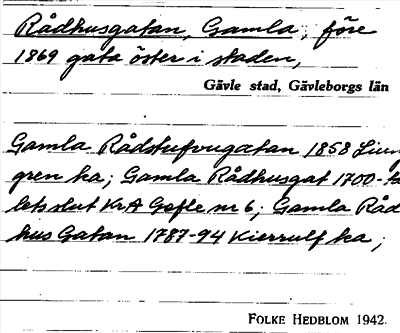 Rådhusgatan, Gamla, före
1869 gata öster i staden,
Gävle stad, Gävleborgs län
Gamla Rådstufvugatan 1858 Ljung
gren ka; Gamla Rådhusgat 1700-ta
lets slut KrA Gefle nr 6; Gamla Råd
hus Gatan 1787-94 Kierrulf ka;
FOLKE HEDBLOM 1942.